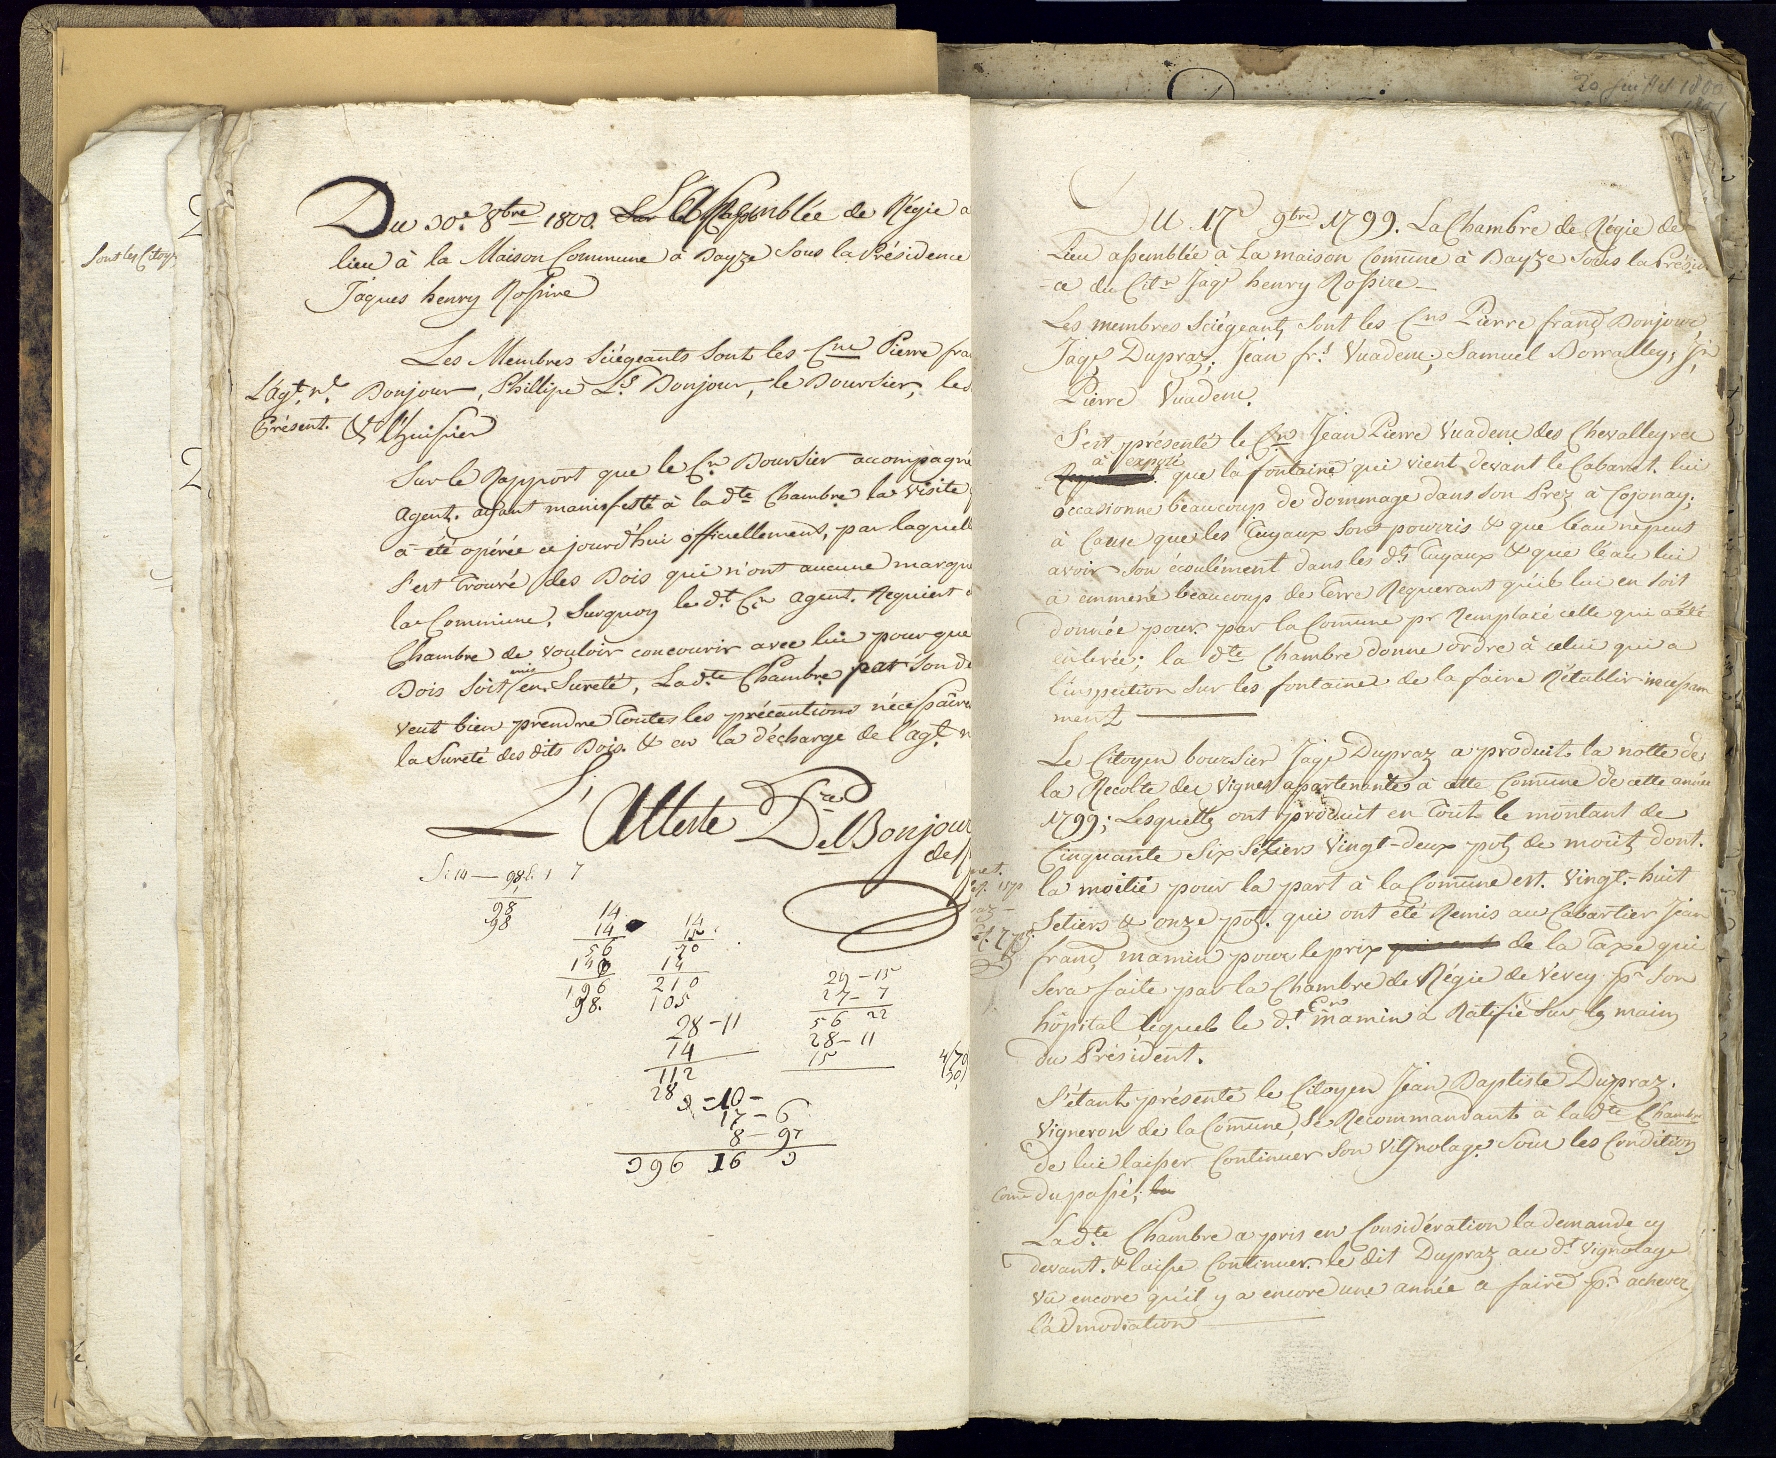 Sont les Citoy
Du 30e. 8bre 1800. L'Assemblée de Régie a
lieu à la Maison Commune à Bayze sous la Présidence
Jâques henry Rossire
Les Membres Siégeants Sont les Cns Pierre fra
L'agt. nl. Bonjour, Phillipe Ls. Bonjour, le Boursier, les
Présent. & l'huissier
Sur le Rapport que le Cn. Boursier accompagné
Agent. ayant manifesté à la dte Chambre la visite
à été opérée ce jourd'hui officiellement, par laquell
s'est trouvé des Bois qui n'ont aucune marque
la Commune, Surquoy le dt. Cn agent. Requiert
Chambre de vouloir concourir avec lui pour que
Bois Soit mis en Sureté, La dte Chambre par son de
veut bien prendre toutes les précautions nécessaires
la Sureté des dits Bois. & en la décharge de l'agt. n
L'Atteste Dl. Bonjour
98 l. 1 7
98
98
14
14
56
14
196
98.
14
15
70
14
210
105
28-11
14
112
28
29-15
27-7
56 22
28-11
15
3-10-
17-6
8-97
396 16 3
Du 17e 9bre 1799. La Chambre de Régie de
Lieu assemblée à la maison Comune à Bayze Sous la Présid
-ce du Citn Jaqs henry Rossire
Les membres Sciégeants sont les Cns Pierre franç Bonjour,
Jaqs Dupraz; Jean fr. Vuadens; Samuel Borralley; Jn
Pierre Vuadens.
S'est présenté le Cn Jean Pierre Vuadens des Chevalleyres
à exposé que la fontaine qui vient devant le Cabaret. lui
occasionne beaucoup de dommage dans son Prez à Cojonay;
à Cause que les Tuyaux sont pourris & que l'eau ne peut
avoir son écoulément dans les dts Tuyaux & que l'eau lui
à emmené beaucoup de terre Requerant qu'il lui en soit
donnée pour par la Comune pr Remplacé celle qui a été
enlevée; la dte Chambre donne ordre à celui qui a
l'inspection sur les fontaines de la faire Rétablir incessam
ment
Le Citoyen boursier Jaqs Dupraz a produit la notte de
la Récolte des Vignes apartenantes à cette Comune de cette année
1799; Lesquelles ont produit en tout le montant de
Cinquante Six Sétiers Vingt-deux pots de mouts dont.
la moitié pour la part à la Comune est. Vingt-huit
Setiers & onze pots. qui ont été Remis au Cabartier Jean
franç mamin pour le prix de la Taxe qui
sera faite par la Chambre de Régie de Vevey pr son
hôpital lequel le dt. Cn mamin a Ratifié sur les mains
du Président.
S'étant présenté le Citoyen Jean Baptiste Dupraz.
Vigneron de la Comune, Se Recommandant à la dte Chambre
de lui laisser Continuer son Vignolage sous les Condition
Come du passé;
La dte Chambre a pris en Considération la demande cy
devant. & laisse Continuer le dit Dupraz au dt Vignolage
vû encore qu'il y a encore une année a faire pr achever
l'admodiation
20 Juillet 1800